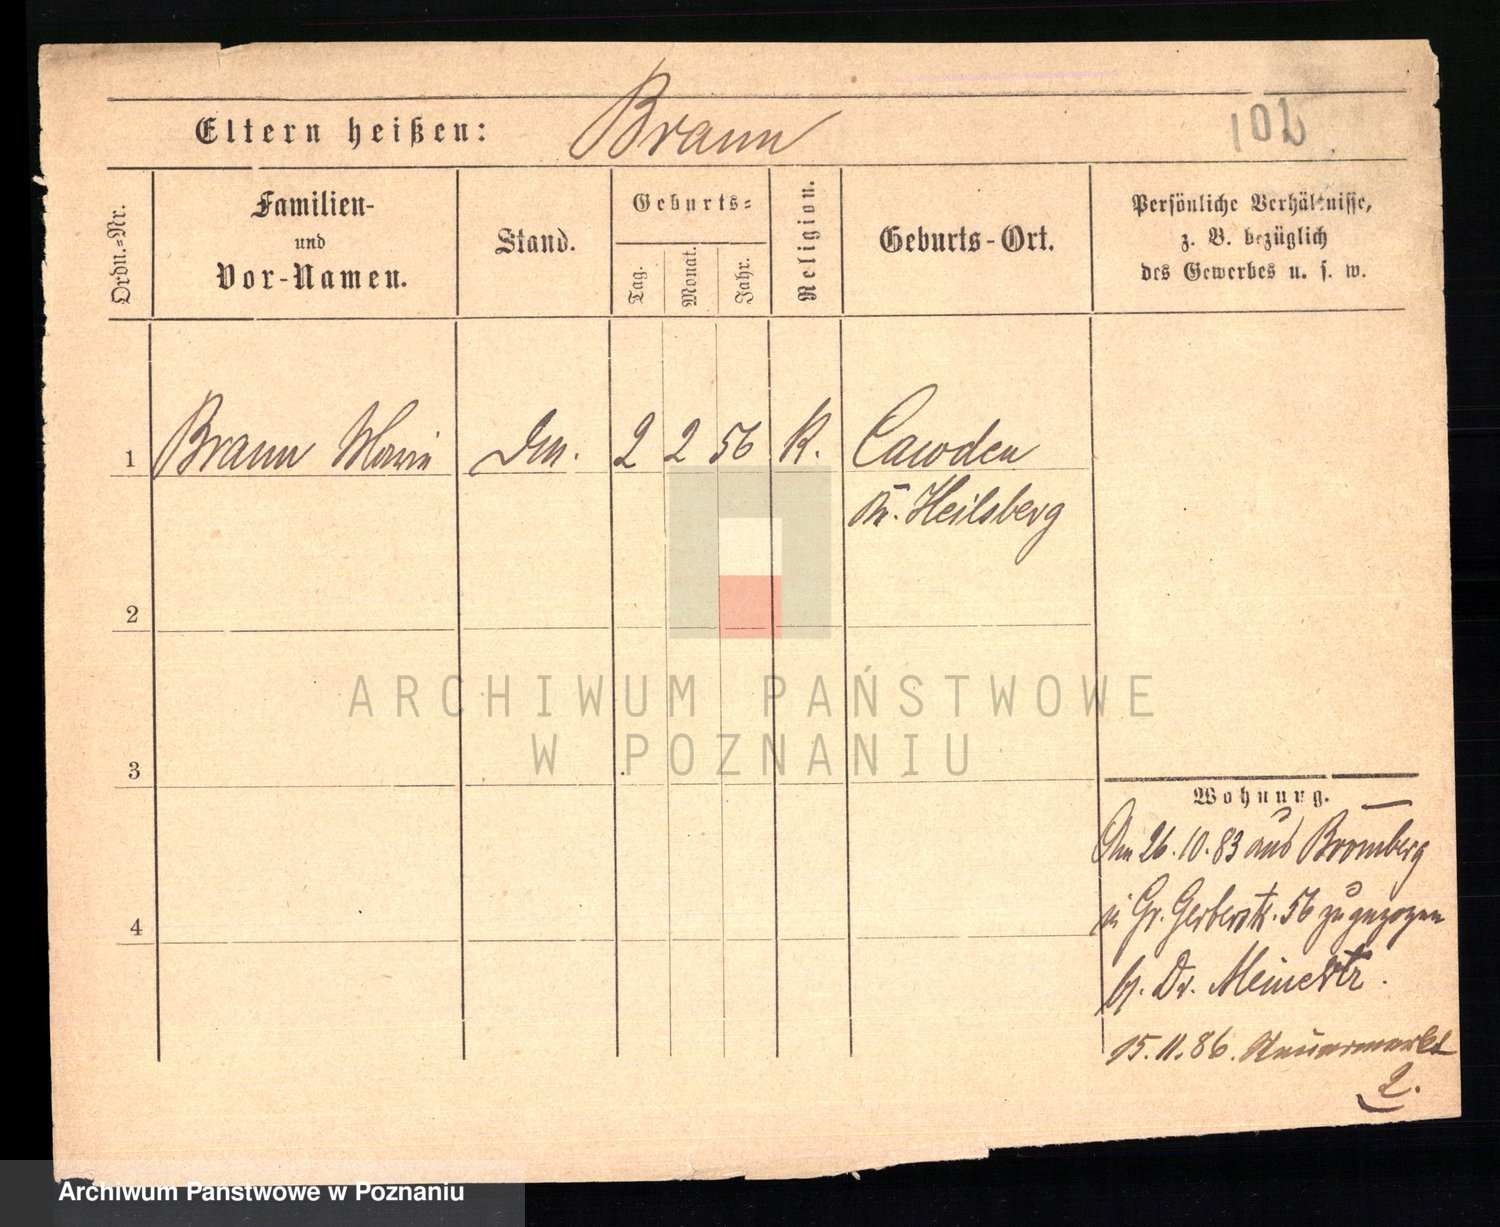 102
Eltern heißen: Braun
Ordn.-Nr.
Familien-
und
Vor-Namen.
Stand.
Geburts-
Tag.
Monat.
Jahr.
Religion.
Geburts-Ort.
Persönliche Verhältnisse,
z. B. bezüglich
des Gewerbes u. s. w.
1 Braun Marie 2 2 56 K. Cawden
Kr. Heilsberg
2
3
4
ARCHIWUM PAŃSTWOWE
W POZNANIU
Wohnung.
Am 26.10.83 aus Bromberg
in Gr. Gerberstr. 56 zugezogen
b. Dr. Meinertz.
15.11.86. Neuermarkt
2.
Archiwum Państwowe w Poznaniu